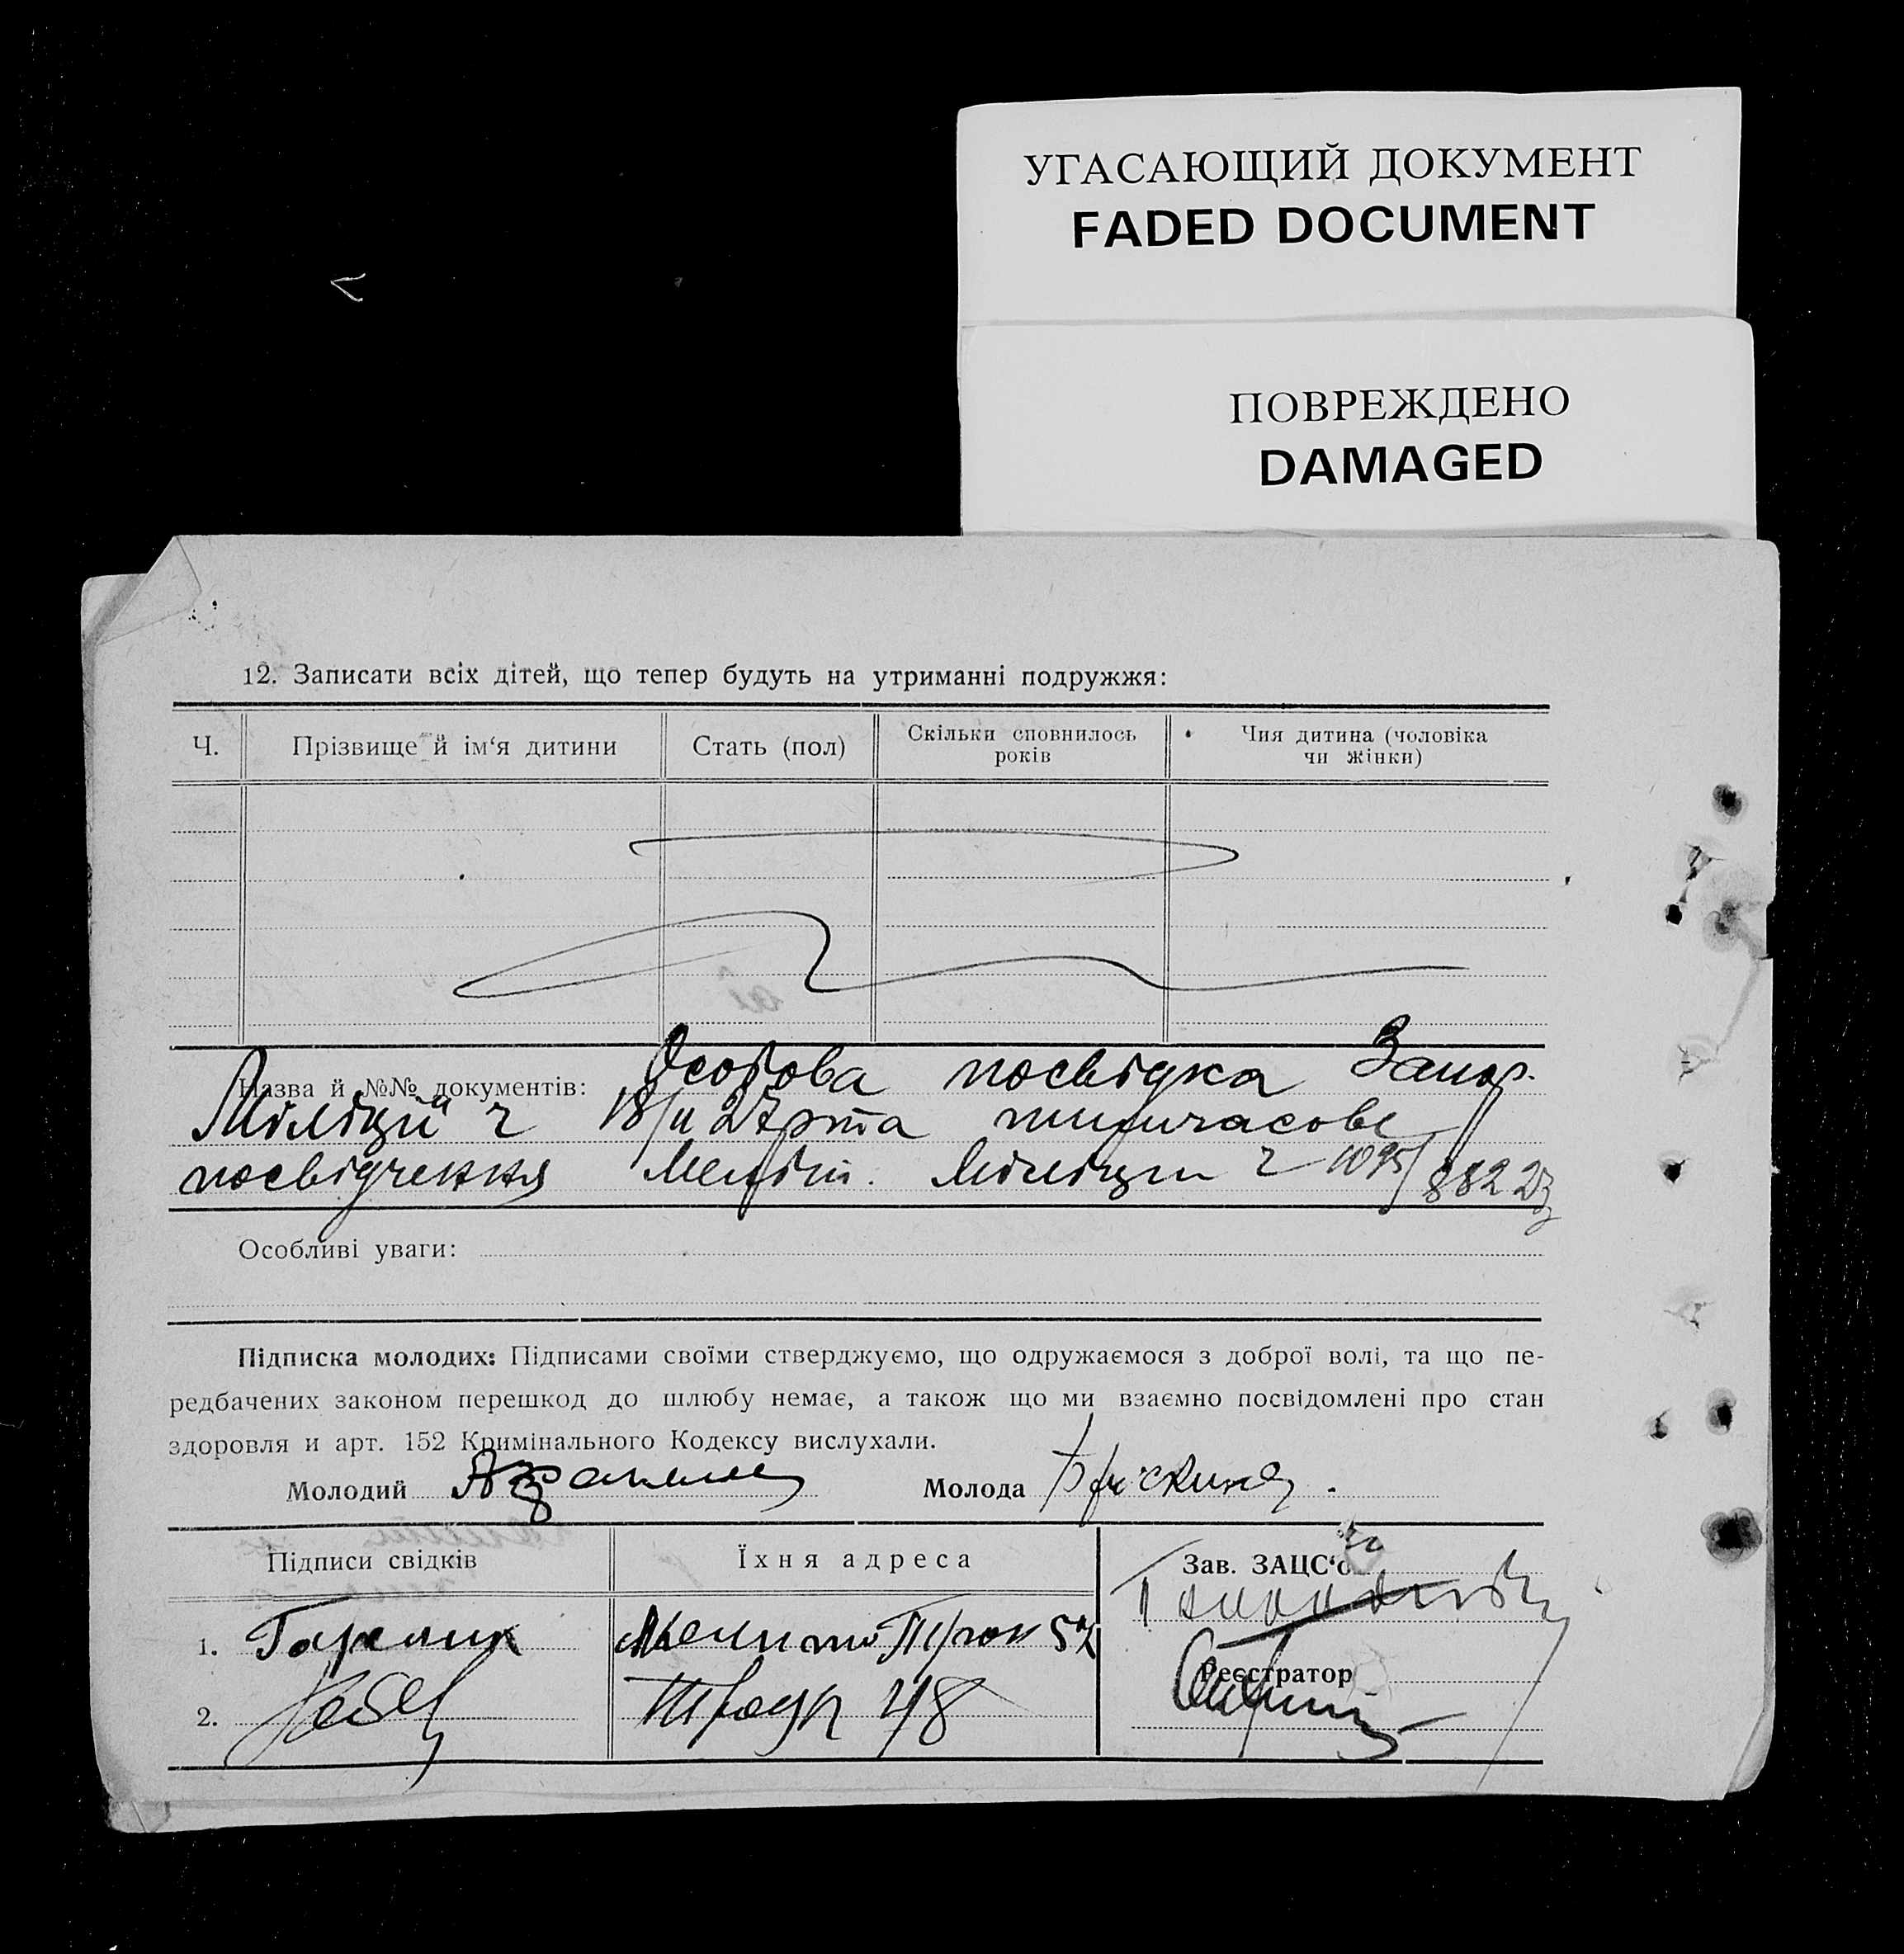 УГАСАЮЩИЙ ДОКУМЕНТ
FADED DOCUMENT
ПОВРЕЖДЕНО
DAMAGED
12. Записати всіх дітей, що тепер будуть на утриманні подружжя:
Ч.
Прізвище й ім‘я дитини
Стать (пол)
Скільки сповнилось
років
Чия дитина (чоловіка
чи жінки)
Назва й №№ документів: Особова посвідка Запор.
Міліції ч 18/II 27 р та тимчасове
посвідчення Меліт. Міліции ч 1095/882 27
Особливі уваги:
Підписка молодих: Підписами своїми стверджуємо, що одружаємося з доброї волі, та що пе-
редбачених законом перешкод до шлюбу немає, а також що ми взаємно посвідомлені про стан
здоровля и арт. 152 Кримінального Кодексу вислухали.
Молодий
Молода
Підписи свідків
Їхня адреса
Зав. ЗАЦС‘о
1.
57
Реєстратор
2.
48